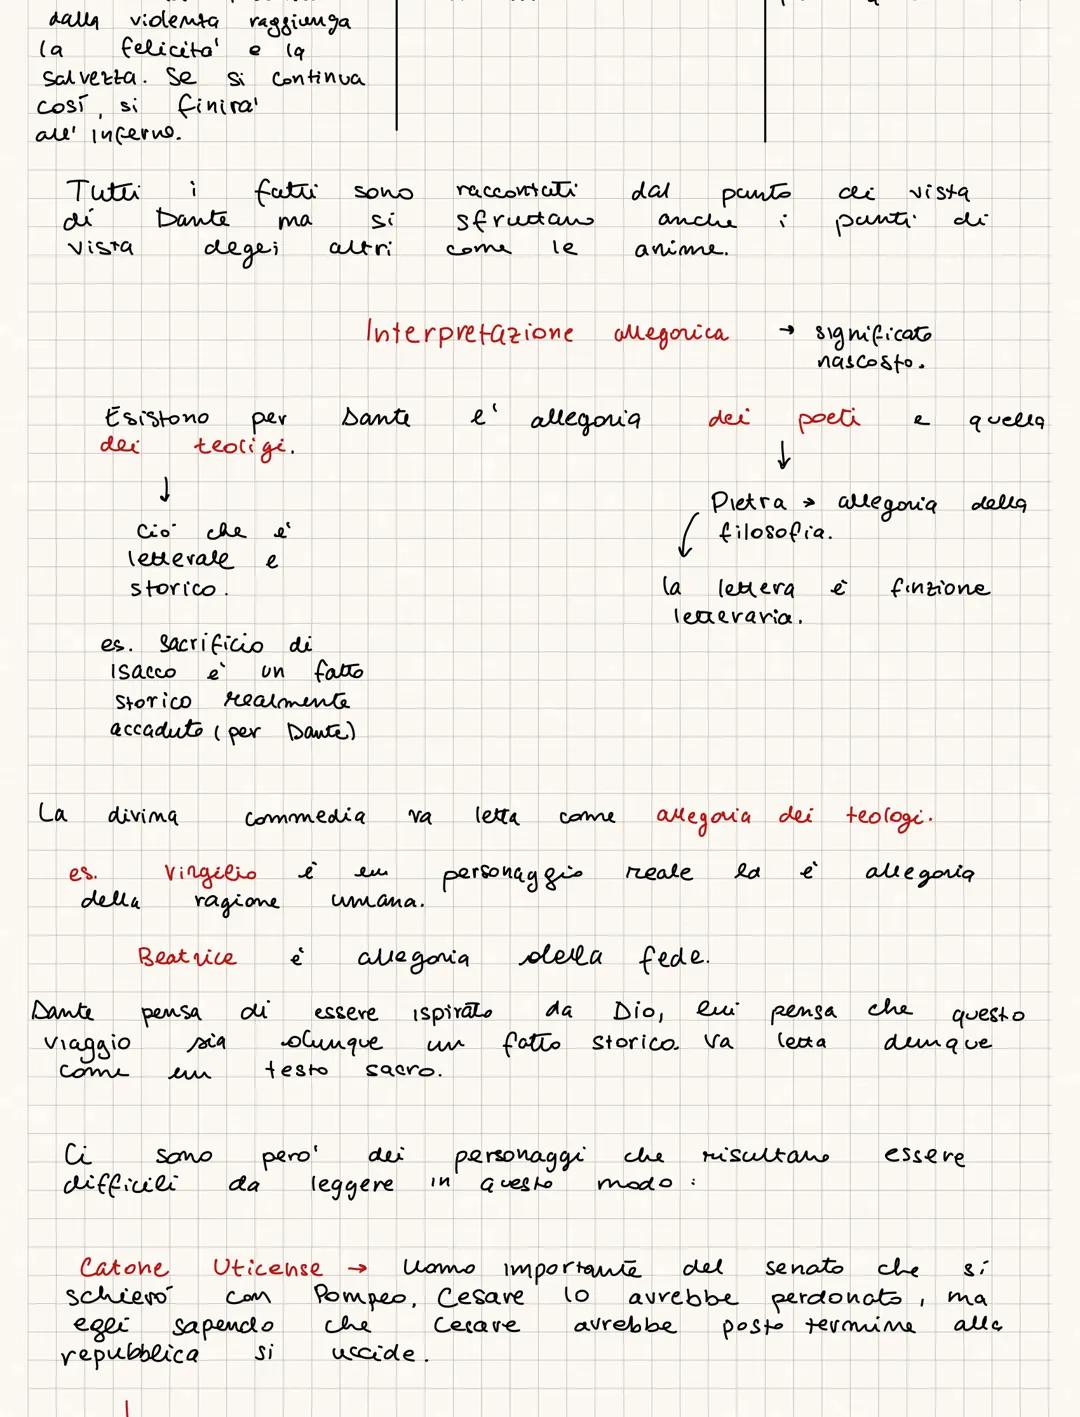 dalla violenza raggiunga
la felicita' e la
salvezza. Se si continua
così, si finira'
all' inferno.
Tutti i fatti sono raccontati dal punto di vista
di Dante ma si sfruttano anche i punti di
vista degli altri come le anime.
Interpretazione allegorica → significato
nascosto.
Esistono per Dante l' allegoria dei poeti e quella
dei teoligi.
↓
↓
Pietra → allegoria della
filosofia.
Ciò che è
letterale e
storico.
la lettera è finzione
letteraria.
es. Sacrificio di
Isacco è un fatto
storico realmente
accaduto (per Dante)
La divina commedia va letta come allegoria dei teologi.
es. Virgilio è un personaggio reale ed è allegoria
della ragione umana.
Beatrice è allegoria della fede.
Dante pensa di essere ispirato da Dio, lui pensa che questo
viaggio sia dunque un fatto storico. Va letta dunque
come un testo sacro.
Ci sono pero' dei personaggi che risultano essere
difficili da leggere in questo modo:
Catone Uticense → Uomo importante del senato che si
schierò con Pompeo, Cesare lo avrebbe perdonato, ma
egli sapendo che Cesare avrebbe posto termine alla
repubblica si uccide.